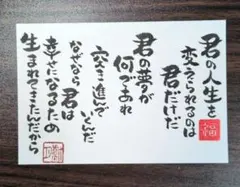 君の人生を
変えられるのは
君だけだ
君の夢が
何であれ
突き進んで
いくんだ
なぜなら君は
幸せになるため
生まれてきたんだから
福